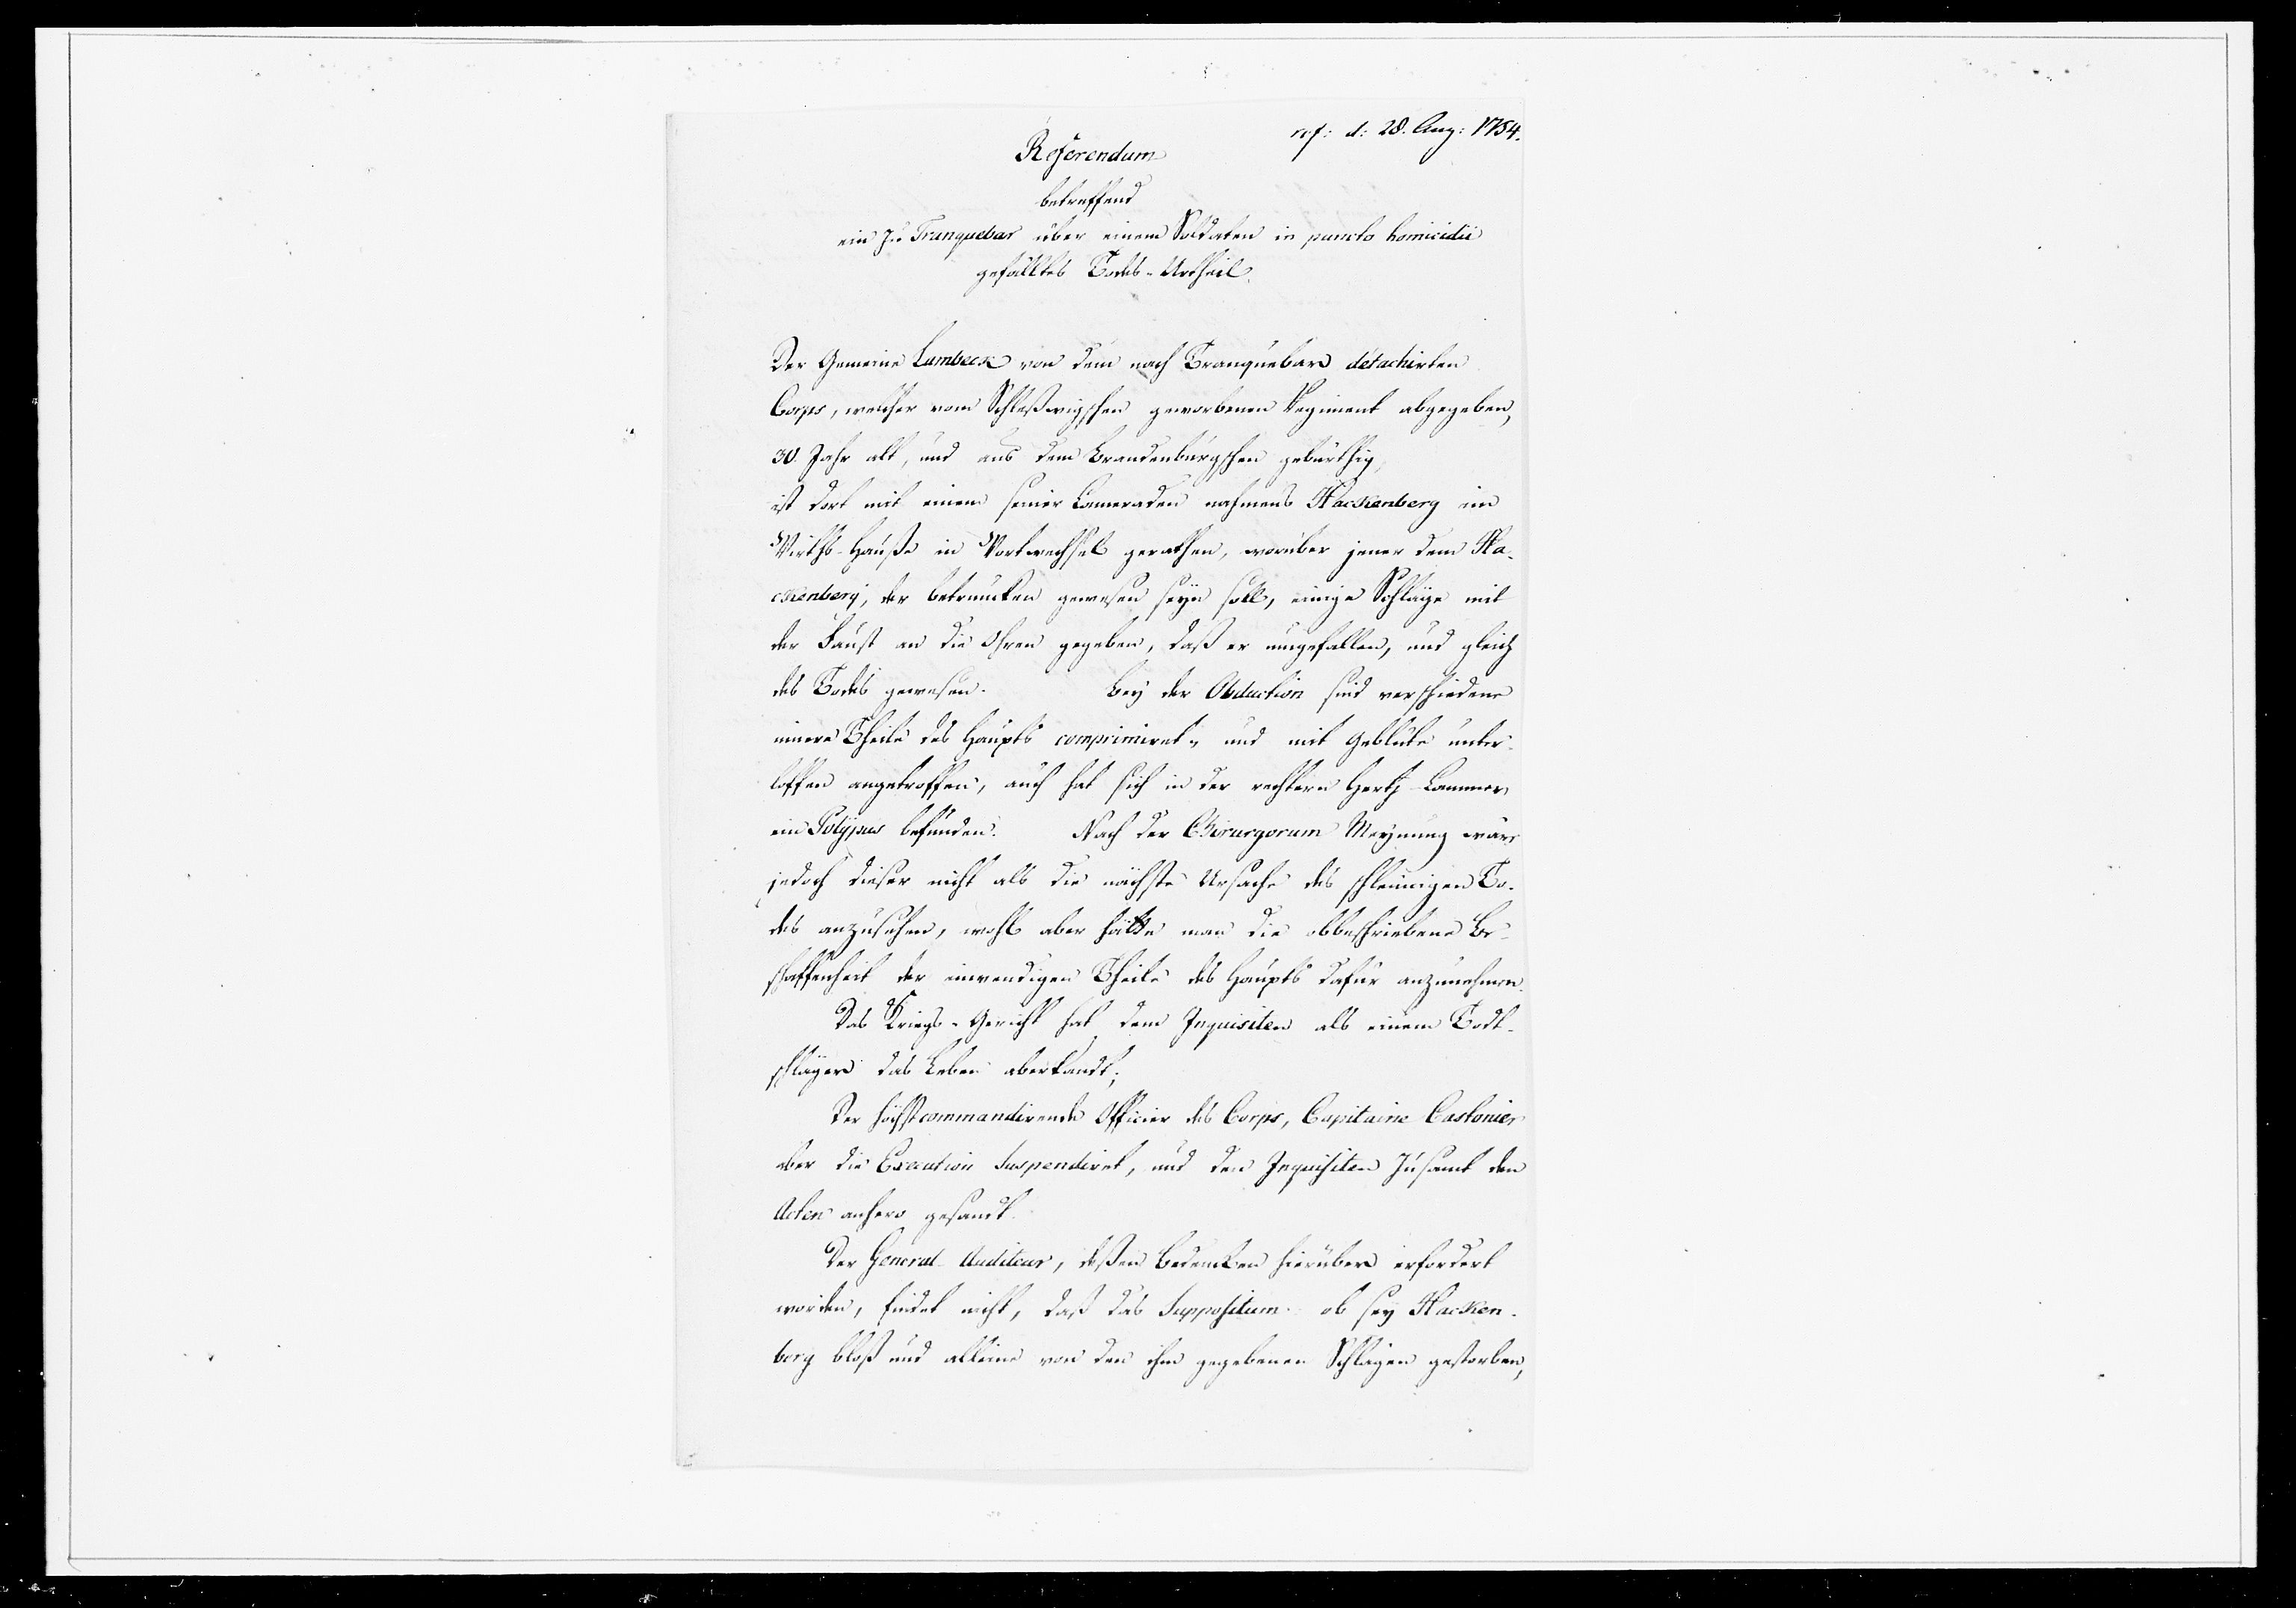 ref: d: 28. Aug: 1754.
Referendum
betreffend
ein zu Tranquebar über einem Soldaten in puncto homicidii
gefälltes Todes-Urtheil.
Der Gemeine Lambeck von dem nach Tranquebar détachirten
Corps, welcher vom Schleßwigschen geworbenen Regiment abgegeben,
30. Jahr alt, und aus dem Brandenburgschen gebürthig,
ist dort mit einem seiner Cameraden nahmens Hackenberg im
Wirths-Hauße in Wortwechsel gerathen, worüber jener dem Ha-
ckenberg, der betruncken gewesen seyn soll, einige Schläge mit
der Faust an die Ohren gegeben, daß er umgefallen, und gleich
des Todes gewesen. Bey der Obduction sind verschiedene
innere Theile des Haupts comprimiret- und mit Geblüte unter-
loffen angetroffen, auch hat sich in der rechtern Hertz-Cammer
ein Polypus befunden. Nach der Chirurgorum Meynung wäre
jedoch dieser nicht als die nächste Ursache des schleunigen To-
des anzusehen, wohl aber hätte man die obbeschriebene Be-
schaffenheit der inwendigen Theile des Haupts dafür anzunehmen.
Das Kriegs-Gericht hat dem Inquisiten als einem Todt-
schläger das Leben aberkandt;
Der höchstcommandirende Officier des Corps, Capitaine Castonier
aber die Execution suspendiret, und den Inquisiten zusamt den
Acten anhero gesandt.
Der General-Auditeur, deßen Bedencken hierüber erfordert
worden, findet nicht, daß das Suppositum ob sey Hacken-
berg bloß und alleine von den ihm gegebenen Schlägen gestorben,